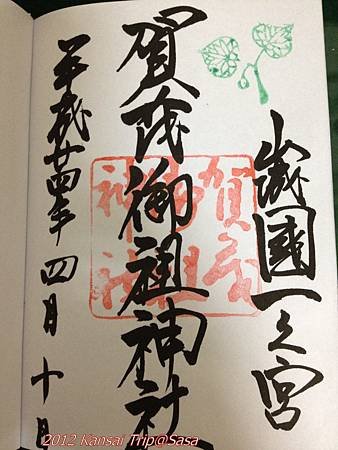 山城國一之宮
賀茂御祖神社
平成廿四年四月十日
賀茂御祖神社
2012 Kansai Trip@Sasa